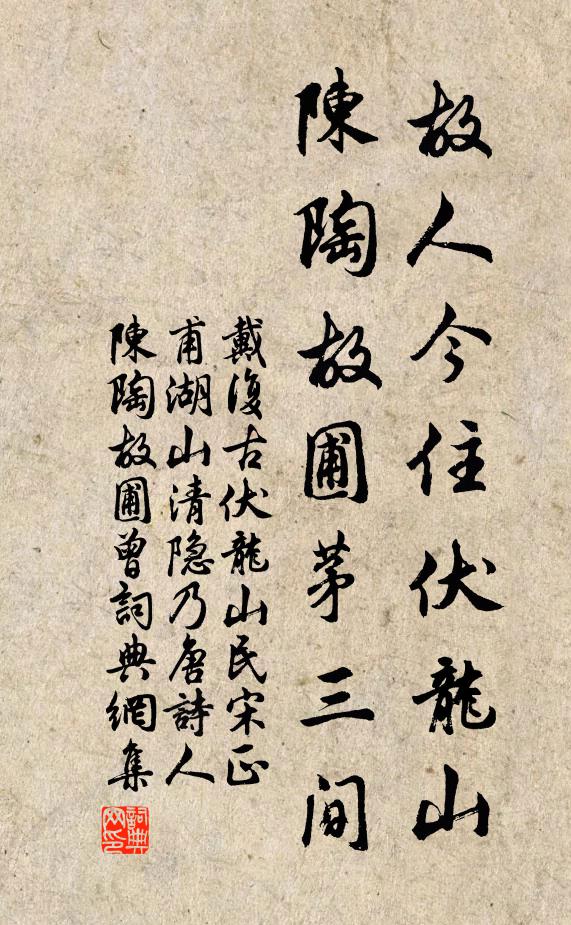 故人今住伏龍山
陳陶故圃茅三间
戴復古伏龍山民宋正
甫湖山清隐乃唐詩人
陳陶故圃曾詞典網集
詞典網印